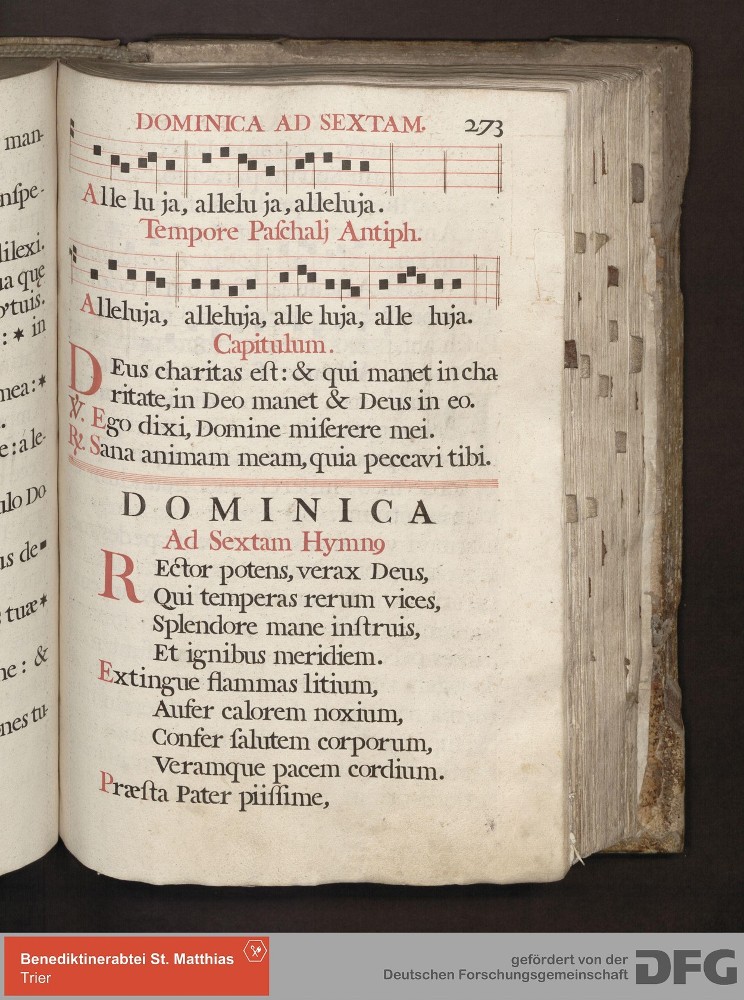 man-
nſpe-
dilexi.
ua quę
tuis.
: * in
mea: *
e: a le-
ulo Do-
us de
tuæ *
ne: &
ones tu-
DOMINICA AD SEXTAM. 273
Alle lu ja, allelu ja, alleluja.
Tempore Paſchalj Antiph.
Alleluja, alleluja, alle luja, alle luja.
Capitulum.
DEus charitas eſt: & qui manet in cha
ritate, in Deo manet & Deus in eo.
℣. Ego dixi, Domine miſerere mei.
℟. Sana animam meam, quia peccavi tibi.
DOMINICA
Ad Sextam Hymnꝰ
REctor potens, verax Deus,
Qui temperas rerum vices,
Splendore mane inſtruis,
Et ignibus meridiem.
Extingue flammas litium,
Aufer calorem noxium,
Confer ſalutem corporum,
Veramque pacem cordium.
Præſta Pater piiſſime,
Benediktinerabtei St. Matthias
Trier
gefördert von der
Deutschen Forschungsgemeinschaft
DFG